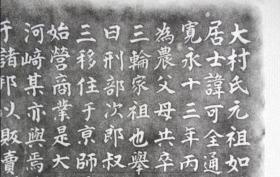 大村氏元祖如
居士諱可全通
寛永十三年丙
為農父母共卒
三輪家祖也舉
曰刑部次郎叔
三移住于京師
始營商業是大
河﨑某亦與焉
于諸邦以販賣